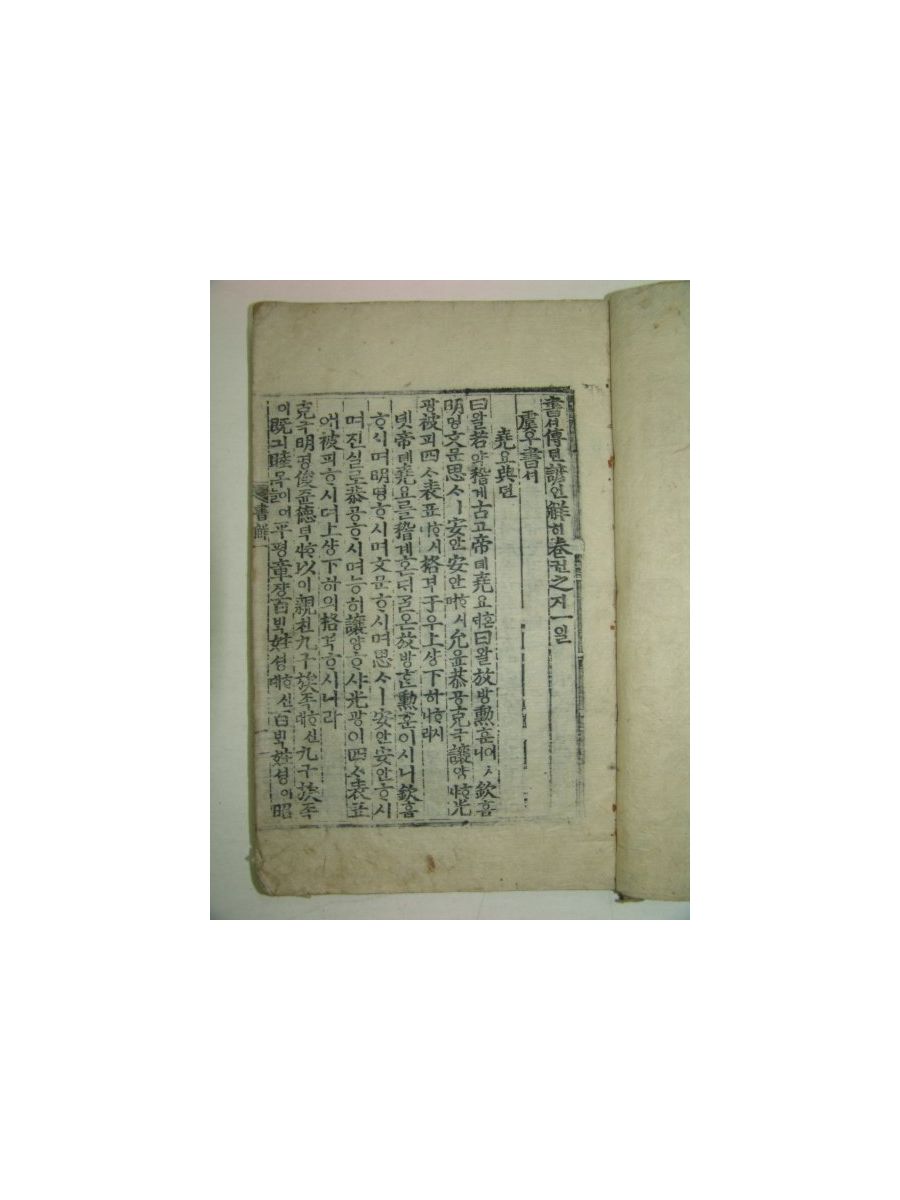 書셔傳뎐諺언解ᄒᆡ卷권之지一일
虞우書셔
堯요典뎐
曰왈若약稽계古고帝뎨堯요ᄒᆞᆫᄃᆡ曰왈放방勳훈이시니欽흠
明명文문思ᄉᆞㅣ安안安안ᄒᆞ시며允윤恭공克극讓양ᄒᆞ샤光
광被피四ᄉᆞ表표ᄒᆞ시며格격于우上샹下하ᄒᆞ시니라
녯帝뎨堯요를稽계혼ᄃᆡᄀᆞᆯ온放방훈勳훈이시니欽흠
ᄒᆞ시며明명ᄒᆞ시며文문ᄒᆞ시며思ᄉᆞㅣ安안安안ᄒᆞ시
며진실로恭공ᄒᆞ시며능히讓양ᄒᆞ샤光광이四ᄉᆞ表표
애被피ᄒᆞ시며上샹下하의格격ᄒᆞ시니라
克극明명俊쥰德덕ᄒᆞ샤以이親친九구族족ᄒᆞ신대九구族족
이既긔睦목ᄒᆞ이어平평章쟝百ᄇᆡᆨ姓셩ᄒᆞ신대百ᄇᆡᆨ姓셩이昭
書解一